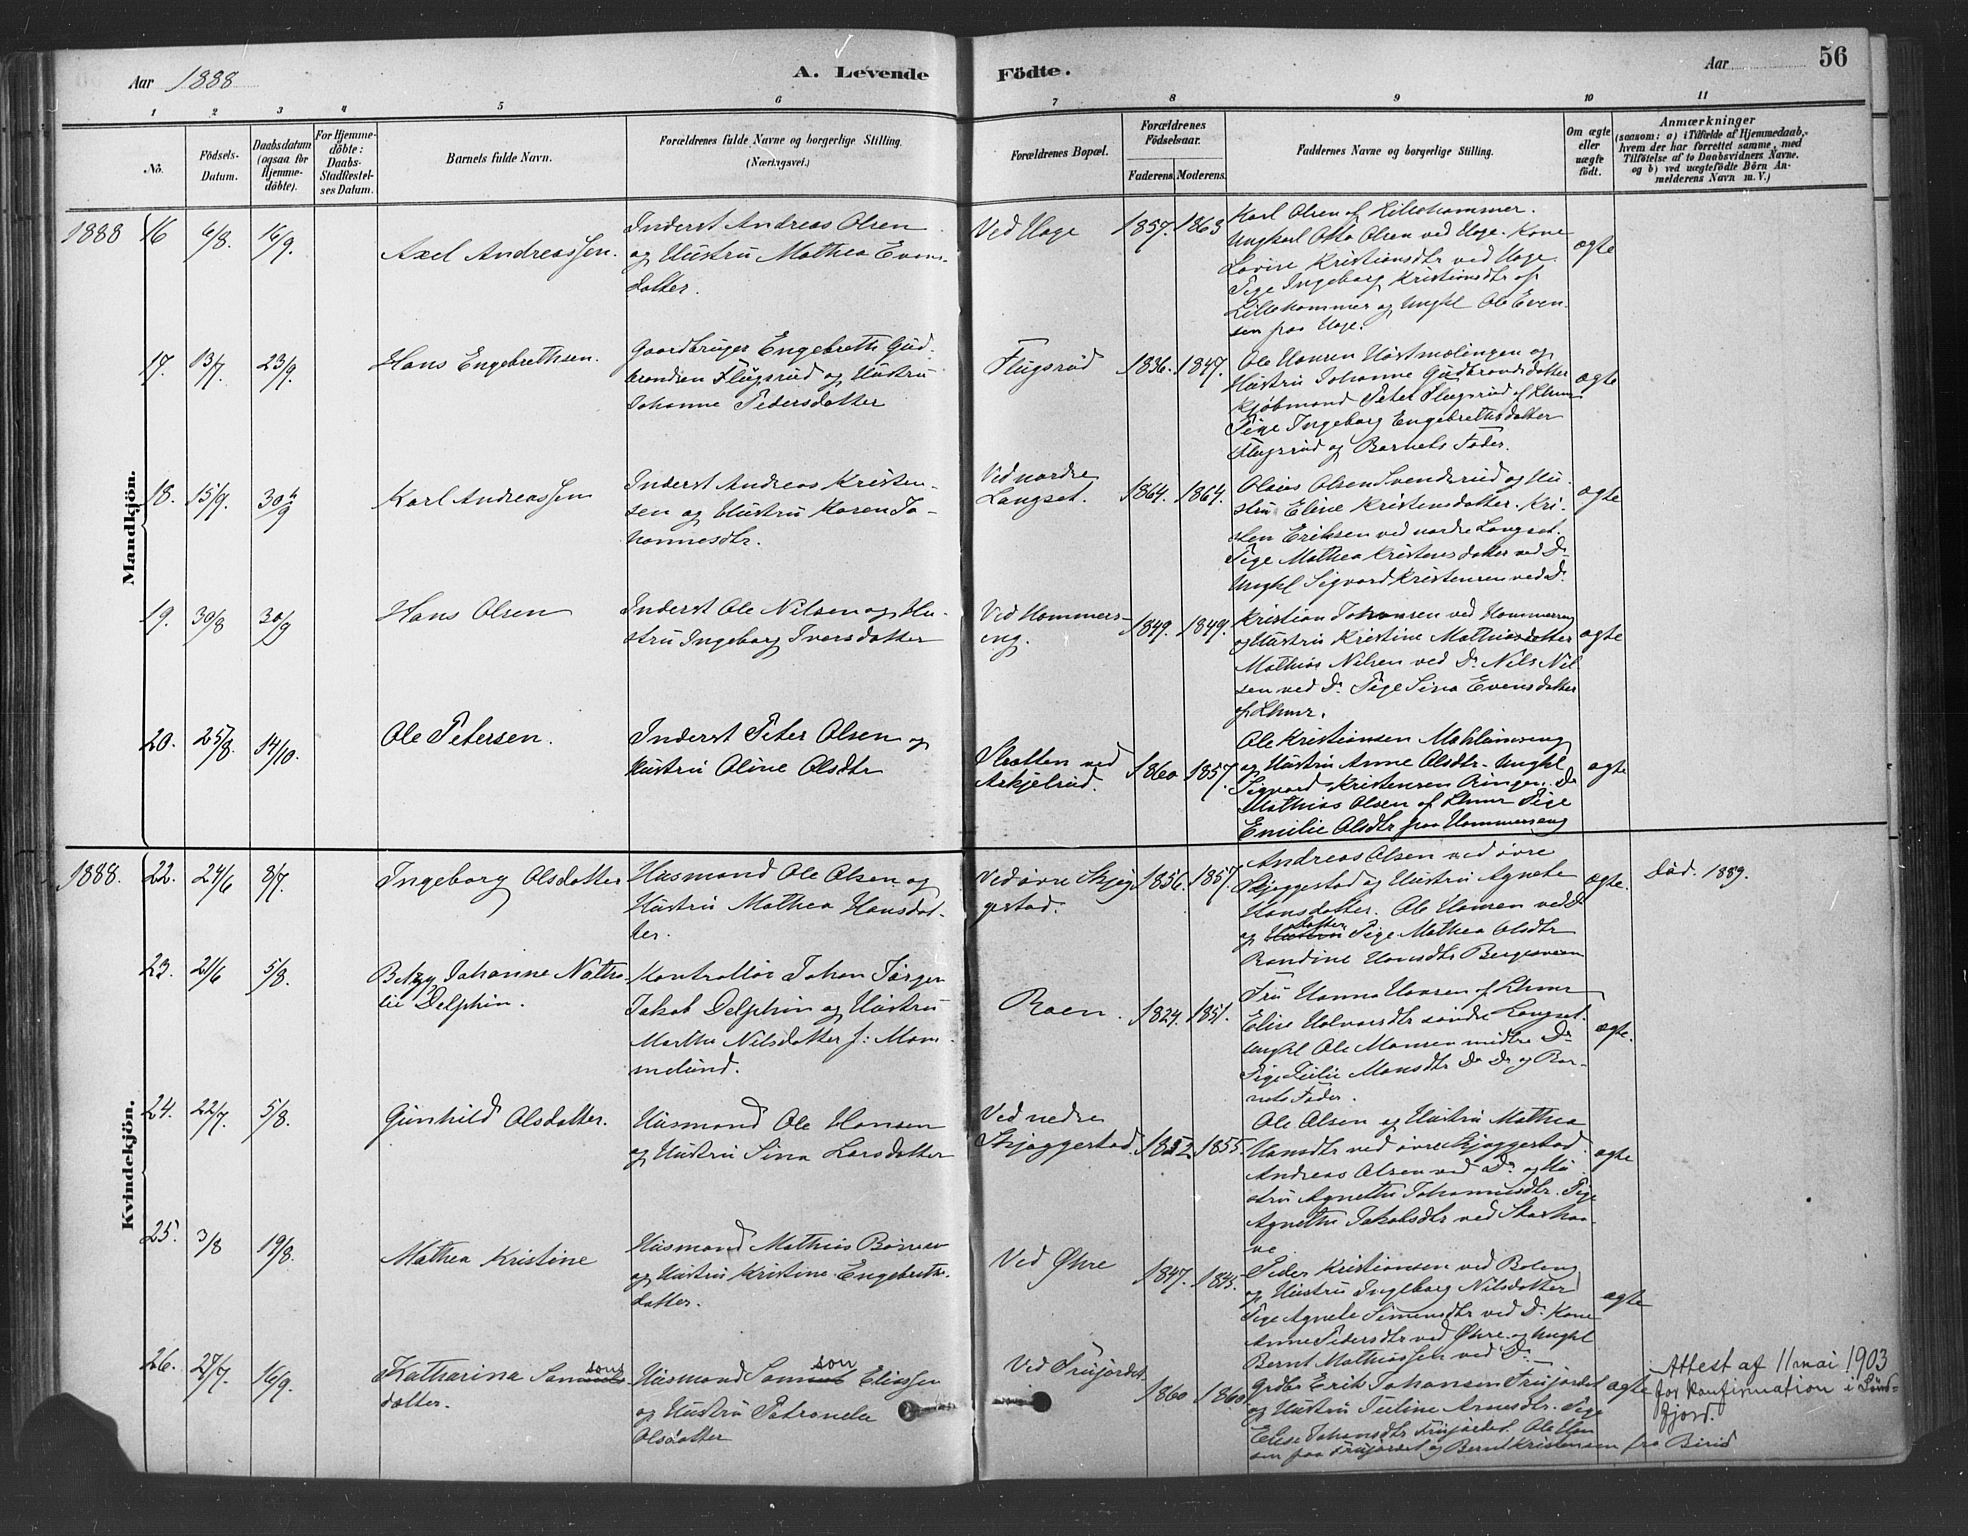 Aar 1888
A. Levende Födte.
Aar 56
1 2 3 4 5 6 7 8 9 10 11
No.
Födsels-Datum.
Daabsdatum (ogsaa för Hjemme-döbte).
For Hjemme-döbte: Daabs-Stadfestel-ses Datum.
Barnets fulde Navn.
Forældrenes fulde Navne og borgerlige Stilling. (Næringsvei.)
Forældrenes Bopæl.
Forældrenes Födselsaar.
Faderens Moderens.
Faddernes Navne og borgerlige Stilling.
Om ægte eller uægte födt.
Anmærkninger
(saasom: a) i Tilfælde af Hjemmedaab, hvem der har forrettet samme, med Tilföielse af to Daabsvidners Navne. og b) ved uægtefödte Börn An-melderens Navn m. V.)
Mandkjön.
1888 16 6/8. 16/9.
Axel Andreassen.
Inderst Andreas Olsen
og Hustru Mathea Evens-
datter.
Ved Hage
1857. 1863
Karl Olsen af Lillehammer.
Ungkarl Otto Olsen ved Hage. Kone
Lovise Kristiansdtr ved Hage.
Pige Ingeborg Kristiansdtr af
Lillehammer og Ungkl Ole Even-
sen paa Hage.
ægte
17. 13/7. 23/9.
Hans Engebrethsen.
Gaardbruger Engebreth Gud-
brandsen Flugsrud og Hustru
Johanne Pedersdatter
Flugsrud
1836. 1847.
Ole Hansen Hostmælingen og
Hustru Johanne Gudbrandsdatter
Kjøbmand Peter Flugsrud af Lhmr
Pige Ingeborg Engebrethsdatter
Flugsrud og Barnets Fader.
ægte
18. 15/9. 30/9
Karl Andreassen
Inderst Andreas Kristen-
sen og Hustru Karen Jo-
hannesdtr.
Ved nordre
Langset.
1864. 1864.
Olaus Olsen Svendsrud og Hu-
stru Eline Kristensdatter. Kri-
sten Eriksen ved nordre Langset.
Pige Mathea Kristensdatter ved Do
Ungkl Sigvard Kristensen ved Do.
ægte
19. 30/8 30/9
Hans Olsen
Inderst Ole Nilsen og Hu-
stru Ingeborg Iversdatter
Ved Hammers-
eng.
1849. 1849.
Kristian Johansen ved Hammerseng
og Hustru Kristine Mathiasdatter
Mathias Nilsen ved Do Nils Nil-
sen ved Do Pige Sina Evensdatter
af Lhmr.
ægte
20. 25/8. 14/10.
Ole Petersen.
Inderst Peter Olsen og
Hustru Oline Olsdtr
Slaatten ved
Askjelrud.
1860 1857.
Ole Kristiansen
og Hustru Anne Olsdtr. Ungkl
Sigvard Kristensen Do
Mathias Olsen af Lhmr Pige
Emilie Olsdtr paa Hammerseng
ægte
Kvindekjön.
1888. 22. 24/6 8/7.
Ingeborg Olsdatter
Husmand Ole Olsen og
Hustru Mathea Hansdat-
ter.
Ved øvre Skjog-
gestad.
1856. 1857.
Andreas Olsen ved øvre
Skjoggestad og Hustru Agnete
Hansdatter. Ole Hansen ved Do
og Hustru Datter Pige Mathea Olsdtr
Randine Hansdtr Bergsveen
ægte.
Død. 1889.
23. 21/6 5/8.
Betzy Johanne Natha-
lie Delphin.
Kontrollør Johan Jørgen
Jakob Delphin og Hustru
Marthe Nilsdatter f: Mom-
melund.
Roen.
1824. 1851.
Fru Hanna Hansen af Lhmr
Elise Halvorsdtr søndre Langset.
Ungkl Ole Monsen midtre Do
Pige Julie Monsdtr Do Do og Bar-
nets Fader.
ægte.
24. 22/7. 5/8.
Gunhild Olsdatter.
Husmand Ole Hansen
og Hustru Sina Larsdatter
Ved nedre
Skjoggestad.
1852 1855.
Ole Olsen og Hustru Mathea
Hansdtr ved øvre Skjoggestad.
Andreas Olsen ved Do og Hu
stru Agnethe Johannesdtr. Pige
Agnethe Jakobsdtr ved Storhaa-
ve
ægte
25. 3/8 19/8.
Mathea Kristine
Husmand Mathias
og Hustru Kristine Engebreths-
datter.
Ved Øhre
1847. 1845.
Peder Kristiansen ved Boleng
og Hustru Ingeborg Nilsdatter
Pige Agnete Simensdtr ved Do Kone
Anne Pedersdtr ved Øhre og Ungkl
Bernt Mathiassen ved Do
ægte
26. 27/7. 16/9.
Katharina Samsons-
datter.
Husmand Samson Eliassen
og Hustru Petronelle
Olsdatter
Ved Frujordet
1860 1860
Grdbr Erik Johansen Frujordet
og Hustru Juline Arnesdtr. Pige
Elise Johansdtr Frujordet. Ole Han
sen paa Frujordet og Bernt Kristensen fra Birid
ægte
Attest af 11 mai 1903
for konfirmation i Sønd-
fjord.